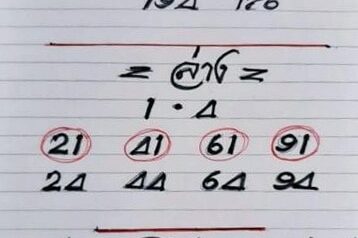 = ล่าง =
1 • 4
21 41 61 91
24 44 64 94